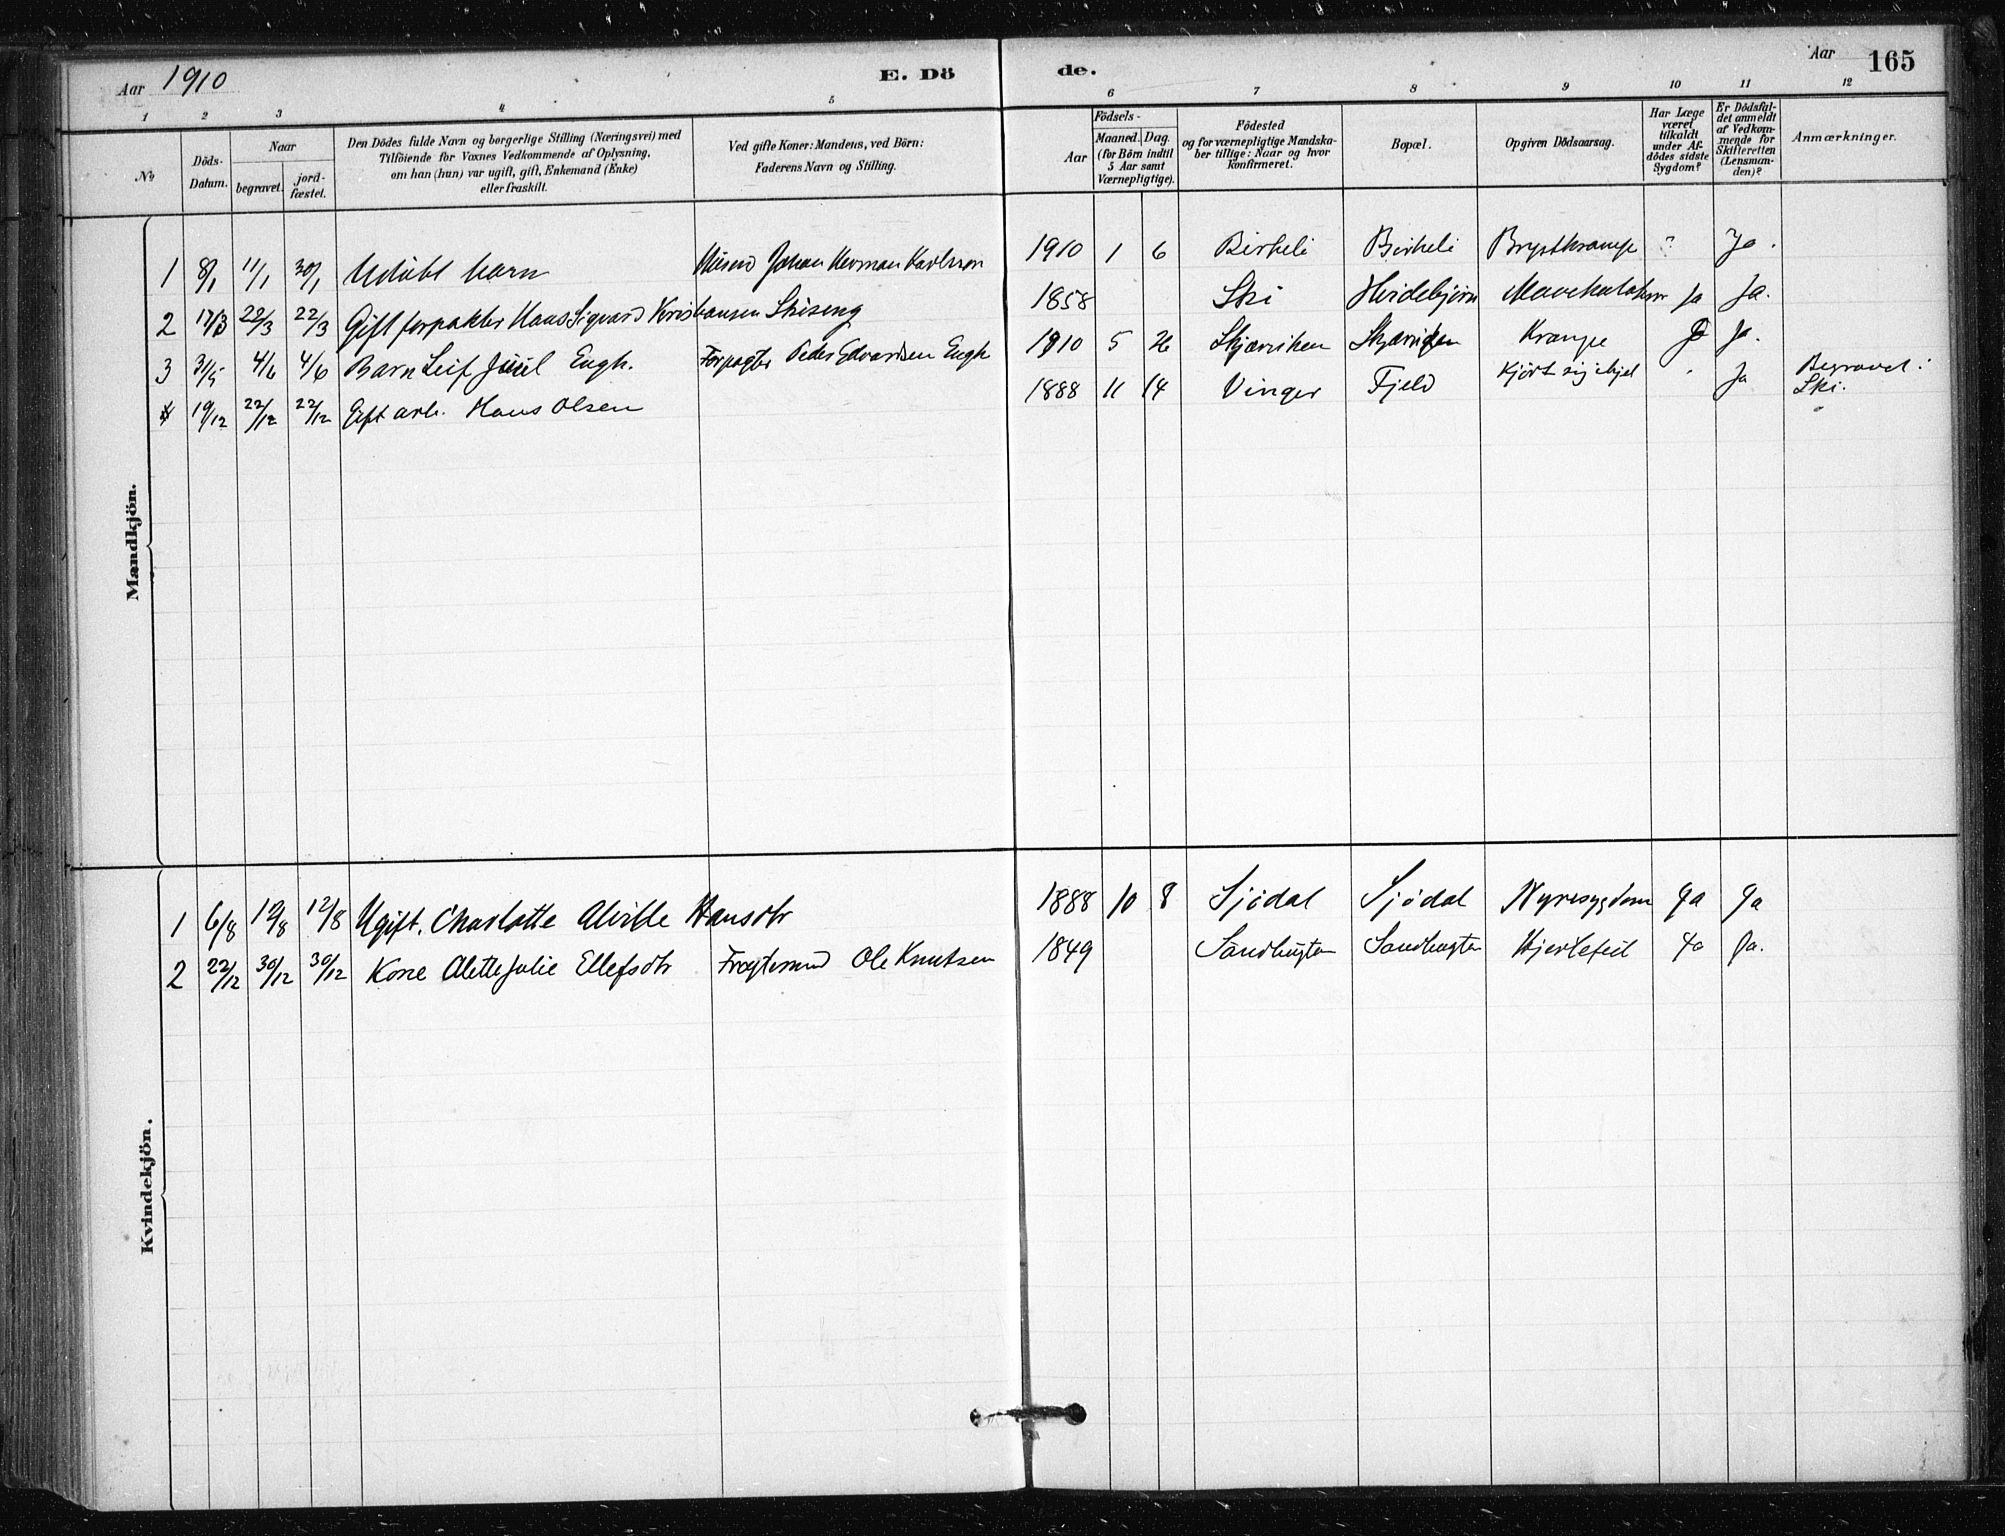 Aar 1910
E. Dö
de.
Aar 165
1 2 3 4 5 6 7 8 9 10 11 12
No
Döds-Datum.
Naar
begravet.
jord-fæstet.
Den Dödes fulde Navn og borgerlige Stilling (Næringsvei) med
Tilföiende for Voxnes Vedkommende af Oplysning,
om han (hun) var ugift, gift, Enkemand (Enke)
eller fraskilt.
Ved gifte Koner: Mandens, ved Börn:
Faderens Navn og Stilling.
Födsels-
Aar
Maaned. Dag.
(for Börn indtil
5 Aar samt
Værnepligtige).
Födested
og for værnepligtige Mandska-
ber tillige: Naar og hvor
konfirmeret.
Bopæl.
Opgiven Dödsaarsag.
Har Læge
været
tilkaldt
under Af-
dödes sidste
Sygdom?
Er Dödsfal-
det anmeldt
af Vedkom-
mende for
Skifteretten
(Lensman-
den)?
Anmærkninger.
Mandkjön.
1 8/1 11/1 30/1 Udöbt barn Johan Herman Karlsson 1910 1 6 Birkeli Birkeli Brystkrampe " Ja.
2 17/3 22/3 22/3 Gift forpakter Hans Sigvard Kristiansen Skiseng 1858 Ski Heidebjörn Ja Ja.
3 31/5 4/6 4/6 Barn Leif Juul Engh. Forpagter Peder Edvardsen Engh 1910 5 26 Skjærviken Skjærviken Krampe Ja Ja.
4 19/12 22/12 22/12 Gift arb. Hans Olsen 1888 11 14 Vinger Fjeld Kjört sig ihjel " Ja Begravet i
Ski.
Kvindekjön.
1 6/8 12/8 12/8 Ugift. Charlotte Alvilde Hansdtr 1888 10 8 Sjödal Sjödal Nyresygdom Ja Ja
2 22/12 30/12 30/12 Kone Alette Julie Ellefsdtr Fragtemand Ole Knutsen 1849 Sandbugten Sandbugten Hjertefeil Ja Ja.